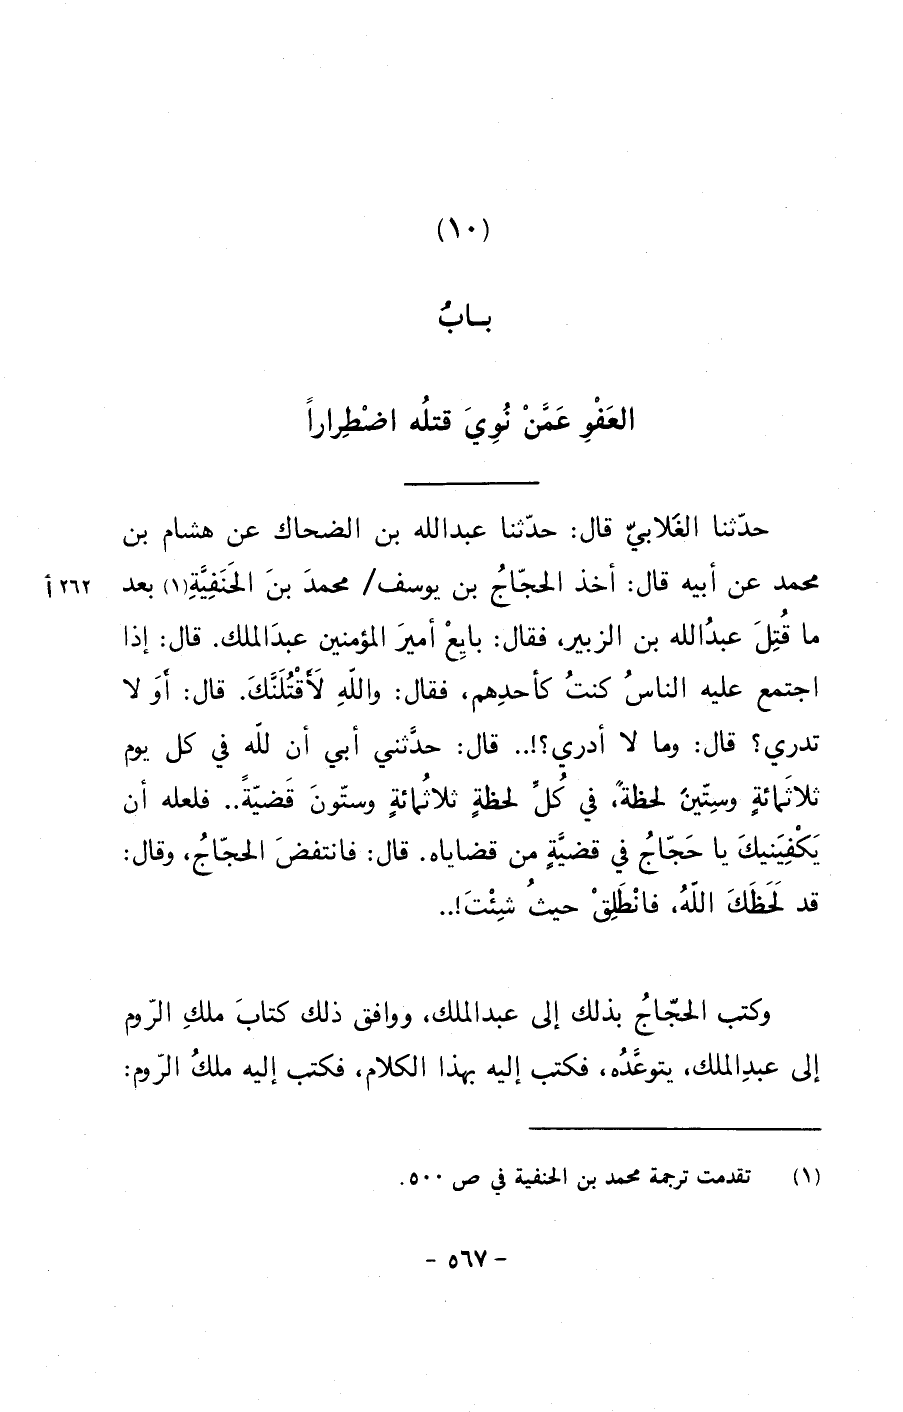 (١٠)
بـابُ
العَفْوِ عَمَّنْ نُوِيَ قتلُه اضْطِراراً
حدّثنا الغَلابيّ قال: حدّثنا عبدالله بن الضحاك عن هشام بن
محمد عن أبيه قال: أخذ الحجّاجُ بن يوسف/ محمدَ بنَ الحَنَفِيَّةِ(١) بعد ٢٦٢ أ
ما قُتِلَ عبدُالله بن الزبير، فقال: بايِعْ أميرَ المؤمنين عبدَالملك. قال: إذا
اجتمع عليه الناسُ كنتُ كأحدِهم، فقال: واللّهِ لَأَقْتُلَنَّكَ. قال: أَوَ لا
تدري؟ قال: وما لا أدري؟!.. قال: حدَّثني أبي أن للّه في كل يوم
ثلاثَمائةٍ وسِتّينَ لحظةً، في كُلِّ لحظةٍ ثلاثُمائةٍ وستّونَ قَضيّةً.. فلعله أن
يَكْفِيَنيكَ يا حَجّاجُ في قضيَّةٍ من قضاياه. قال: فانتفضَ الحجّاجُ، وقال:
قد لَحَظَكَ اللّهُ، فانْطَلِقْ حيثُ شِئْتَ!..
وكتب الحجّاجُ بذلك إلى عبدالملك، ووافق ذلك كتابَ ملكِ الرّوم
إلى عبدِالملك، يتوعَّدُه، فكتب إليه بهذا الكلام، فكتب إليه ملكُ الرّوم:
(١) تقدمت ترجمة محمد بن الحنفية في ص ٥٠٠.
- ٥٦٧ -